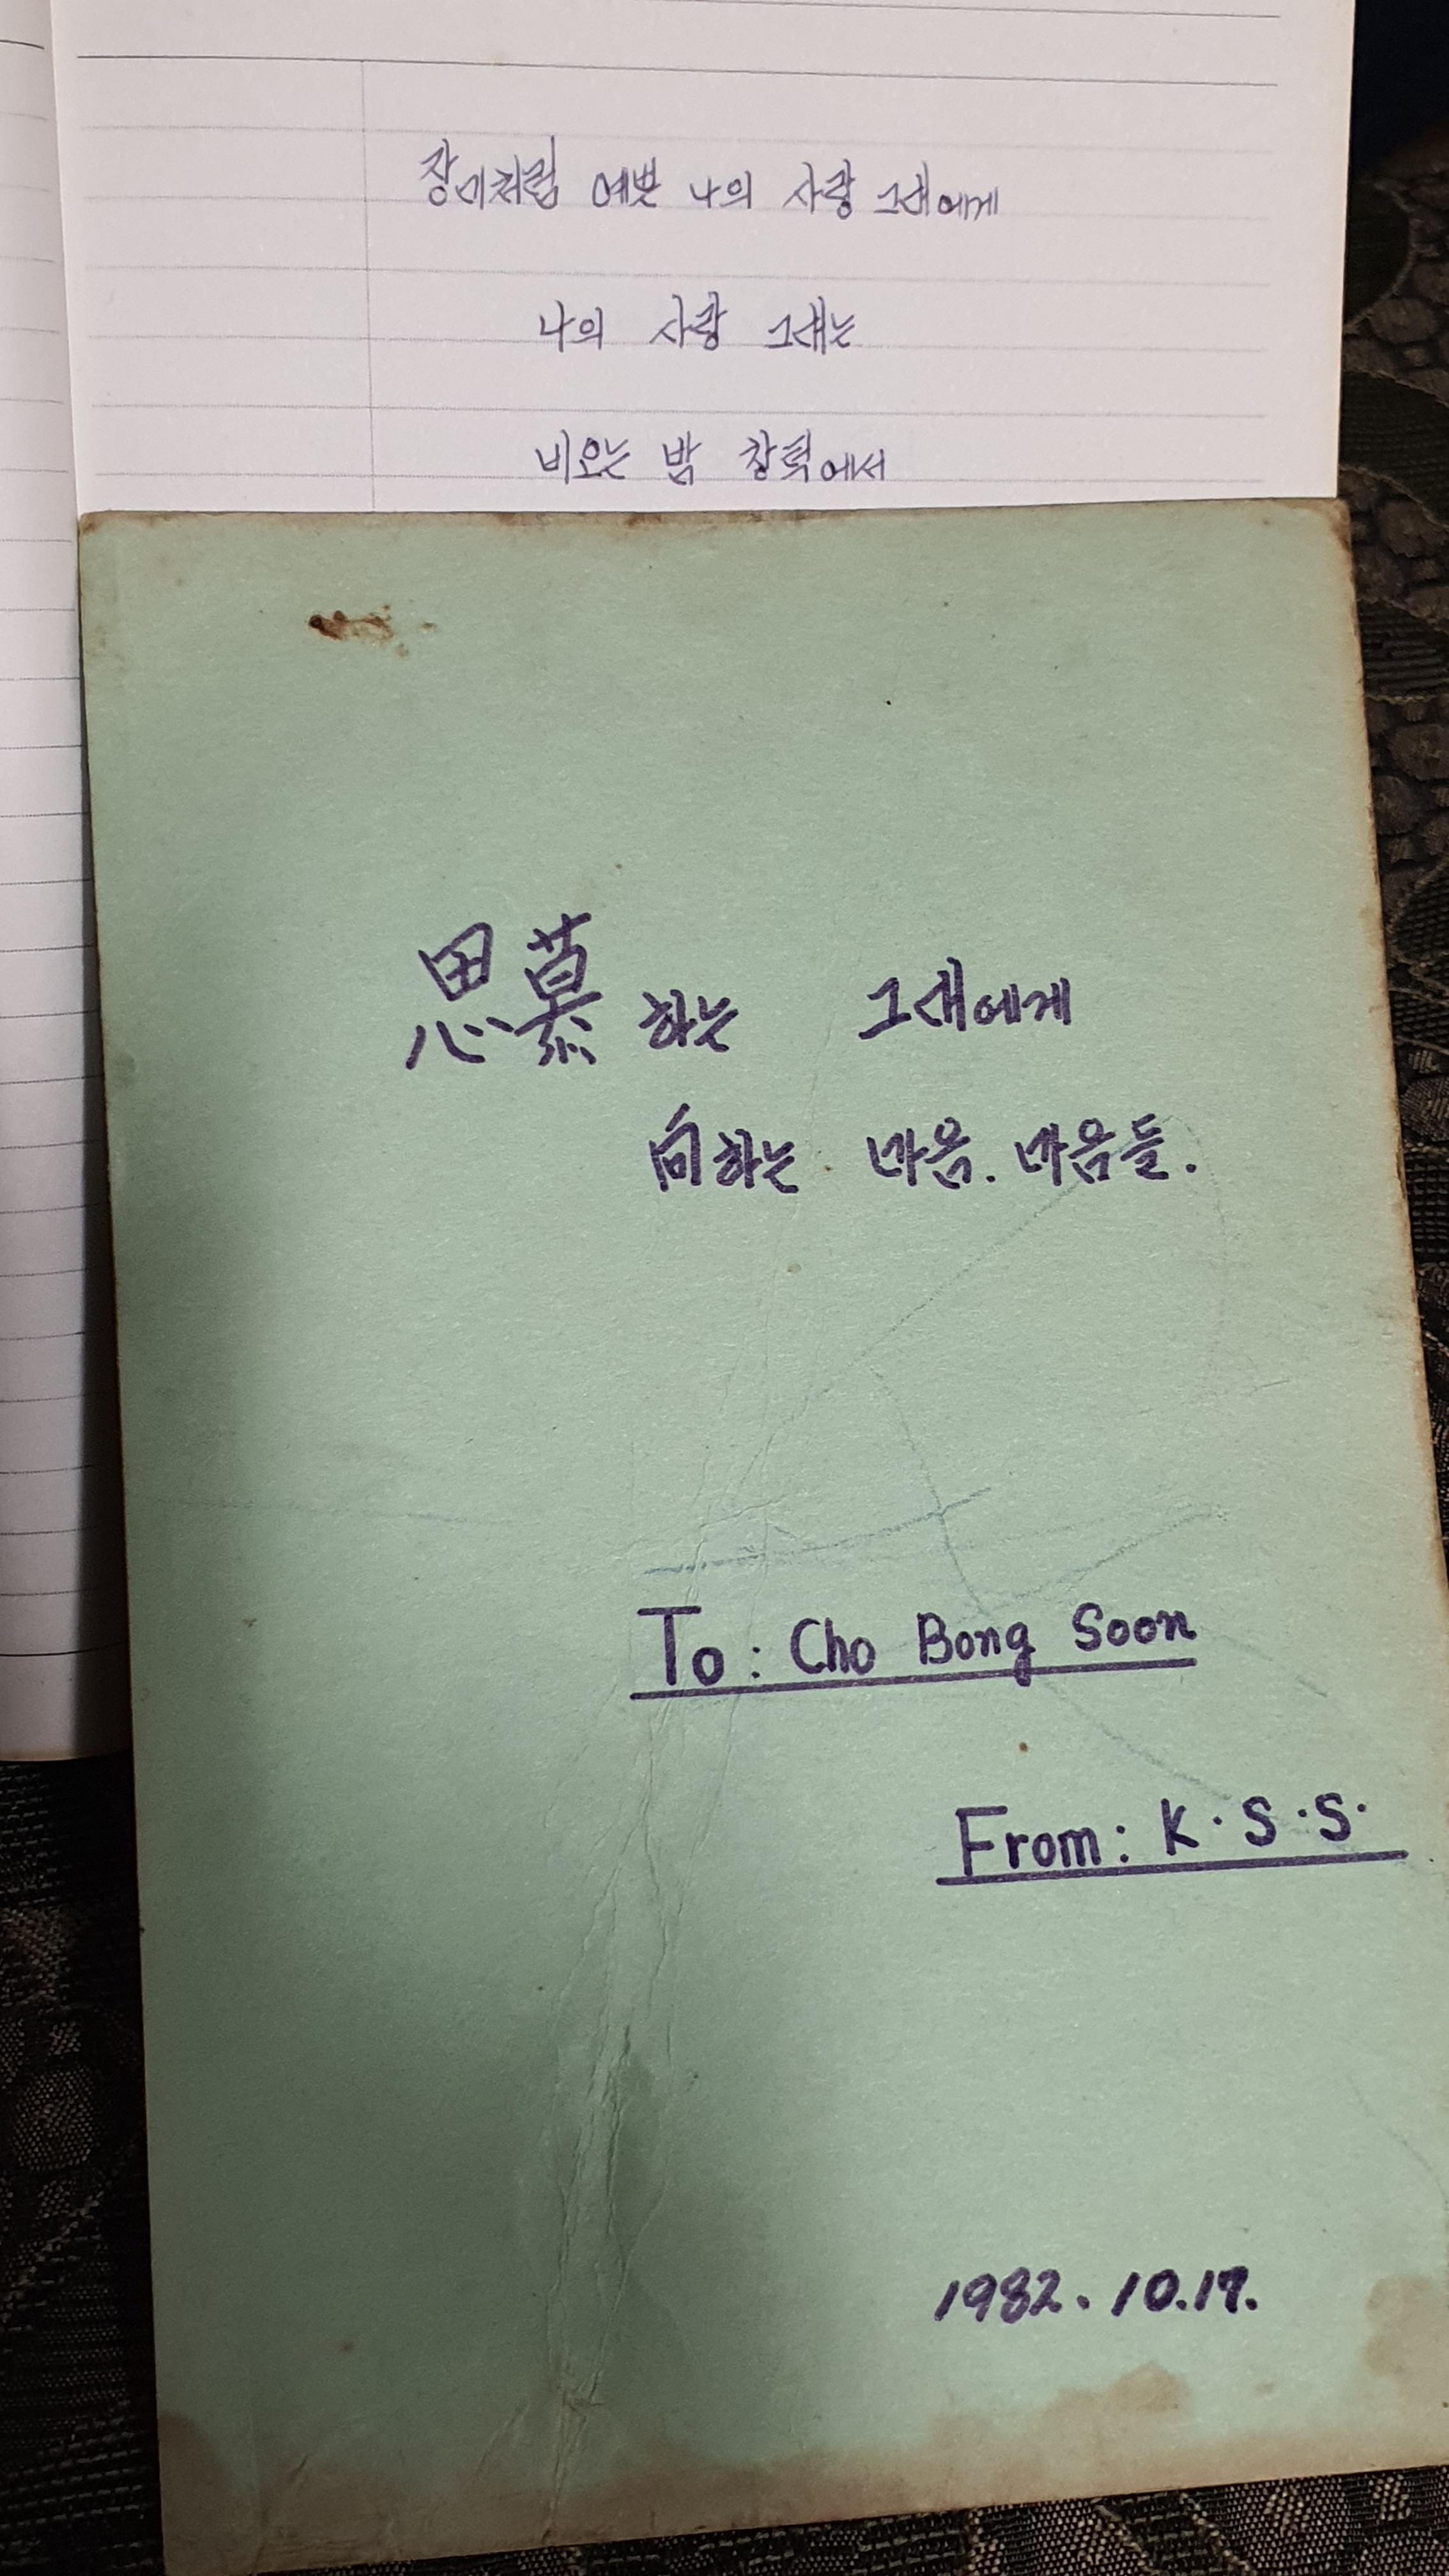 장미처럼 예쁜 나의 사랑 그대에게
나의 사랑 그대는
비오는 밤 창턱에서
思慕하는 그대에게
向하는 마음. 마음들.
To : Cho Bong Soon
From : K·S·S·
1982. 10.17.